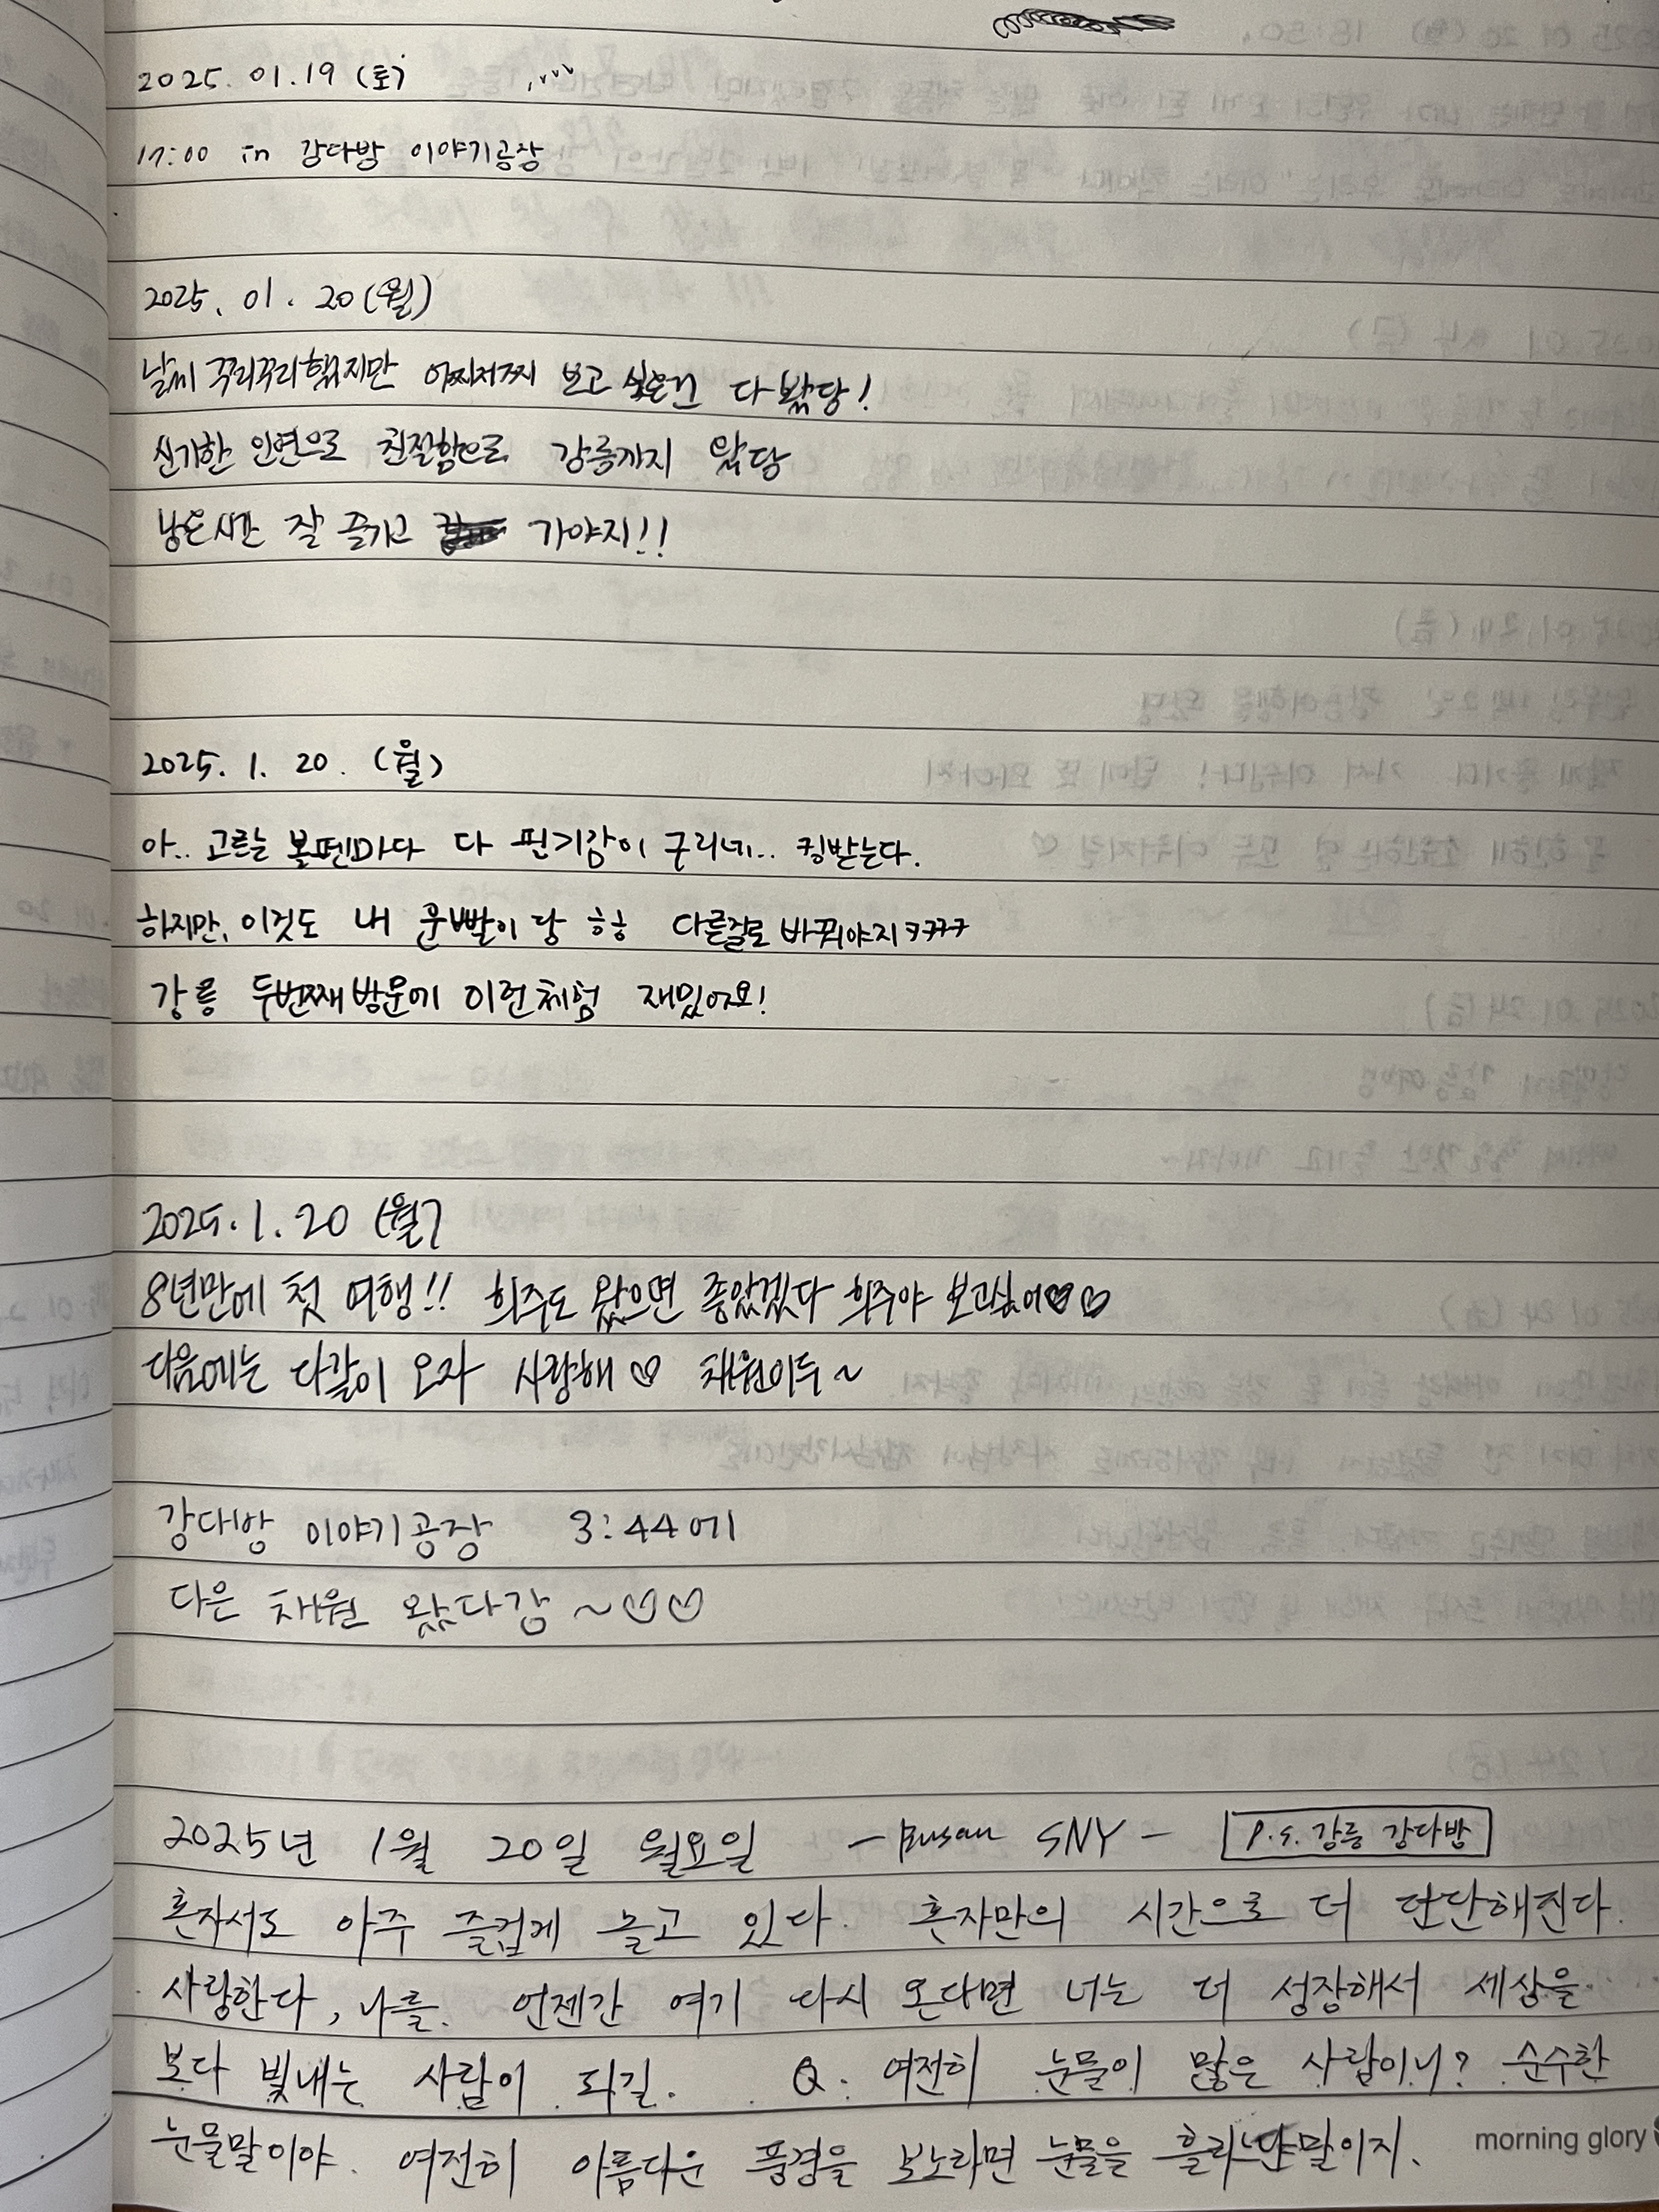 2025. 01.19 (토)
17:00 in 강다방 이야기공장
2025. 01. 20 (월)
날씨 꾸리꾸리했지만 어찌저찌 보고 싶은건 다 봤당!
신기한 인연으로 친절함으로 강릉까지 왔당
남은시간 잘 즐기고 가야지!!
2025. 1. 20. (월)
아.. 고르는 볼펜마다 다 필기감이 구리네.. 킹받는다.
하지만, 이것도 내 운빨이당 ㅎㅎ 다른걸로 바꿔야지ㅋㅋㅋㅋ
강릉 두번째 방문에 이런체험 재밌어요!
2025. 1. 20 (월)
8년만에 첫 여행!! 희주도 왔으면 좋았겠다 희주야 보고싶어♡♡
다음에는 다같이 오자 사랑해♡ 채원이두~
강다방 이야기공장 3:44에
다은 채원 왔다감 ~♡♡
2025년 1월 20일 월요일 - Busan SNY - P.S. 강릉 강다방
혼자서도 아주 즐겁게 놀고 있다. 혼자만의 시간으로 더 단단해진다.
사랑한다, 나를. 언젠간 여기 다시 온다면 너는 더 성장해서 세상을
보다 빛내는 사람이 되길. Q. 여전히 눈물이 많은 사람이니? 순수한
눈물말이야. 여전히 아름다운 풍경을 보노라면 눈물을 흘리냔말이지.
morning glory